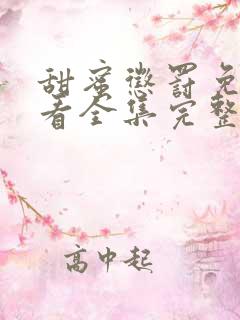 甜蜜懲罰免
看全集完整
高中起